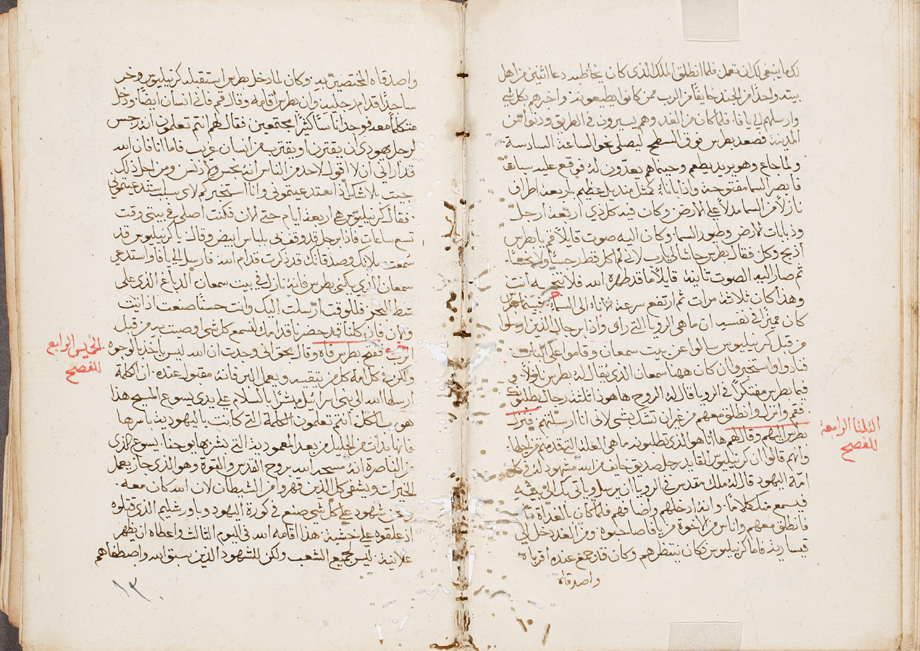 لك ما ينبغي لك ان تعمل فلما انطلق الملك الذي كان يخاطبه دعا اثنين من اهل
بيته وواحدا من الجند خايفا من الرب ممن كانوا يطيعونه واخبرهم بكل شي
وارسلهم الي يافا فلما كان من الغد وهم يسيرون في الطريق ودنوا من
المدينة فصعد بطرس فوق السطح ليصلي نحو الساعة السادسة
ولما جاع وهو يريد يطعم وحينما هم يعدون له وقع عليه سبات
فابصر السما مفتوحة وانا مثل منديل عظيم باربعة اطراف
نازلا من السما مدلا علي الارض وكان فيه كل ذي اربعة ارجل
ودبابات الارض وطيور السما وكان اليه صوت قايلا قم يا بطرس
اذبح وكل فقال بطرس حاشا لي يا رب لاني لم اكل قط
ثم صار اليه الصوت ثانية قايلا ما قد طهره الله فلا تنجسه انت
وهذا كان ثلاثة مرات ثم ارتفع سرعة الانا الي السما
كان مميز في نفسه ان ما هي الرويا التي راي واذا برجال الذين ارسلوا
من قبل كرنيليوس سالوا عن بيت سمعان وقاموا علي الباب
فنادوا واستخبروا ان كان ههنا سمعان الذي يقال له بطرس
فيما بطرس مفتكرا في الرويا قال له الروح ها هوذا ثلثة رجال يطلبونك
فقم وانزل وانطلق معهم من غير ان تشك بشي لاني انا ارسلتهم فنزل
الثلثا الرابعة
للفصح
بطرس اليهم وقال لهم ها انا هو الذي تطلبونه ما هي العلة التي قدمتم من اجلها
وانهم قالوا ان كرنيليوس القايد رجل صديق خايف من الله مشهود له في كل
امة اليهود قال له ملك مقدس في الرويا ان يرسل وياتي بك الي بيته
فيسمع منك كلاما وانه ادخلهم واضافهم فلما كان بالغداة قام
فانطلق معهم واناس من الاخوة من يافا صاحبوه ومن الغد دخل الي
قيسارية فاما كرنيليوس فكان ينتظرهم وكان قد جمع عنده اقرباه
واصدقاة
واصدقاه المختصين به وكان لما دخل بطرس استقبله كرنيليوس وخر
ساجدا قدام رجليه وان بطرس اقامه وقال قم فاني انسان ايضا ودخل
متكلما معه فوجد اناسا كثيرا مجتمعين فقال لهم انتم تعلمون انه رجس
لرجل يهودي ان يقترن او يقترب من انسان غريب فاما انا فان الله
قد اراني ان لا اقول لاحد من الناس انه نجس او دنس ومن اجل ذلك
جيت بلا شك اذ بعثتم دعيتموني وانا استخبركم لاي سبب بعثتم دعيتموني
فقال كرنيليوس من اربعة ايام حتي الان كنت اصلي في بيتي وقت
تسع ساعات فاذا رجل قد وقف بي بلباس ابيض وقال يا كرنيليوس قد
سمعت صلاتك وصدقاتك قد ذكرت قدام الله فارسل الي يافا واستدعي
سمعان الذي يسمي بطرس فانه نازل في بيت سمعان الدباغ الذي علي
شط البحر فللوقت ارسلت اليك وانت حسنا صنعت اذ اتيت
والان فان كلنا قد حضرنا قدامك لنسمع كل شي وصيت به من قبل
الرب ففتح بطرس فاه وقال بحق اني وجدت ان الله ليس ياخذ بالوجوه
الخميس الرابع
للفصح
ولكن في كل امة كل من يتقيه ويعمل البر فانه مقبول عنده ان الكلمة
ارسلها الله الي بني اسرايل مبشرا بالسلام علي يدي يسوع المسيح هذا
هو رب الكل انتم تعلمون الكلمة التي كانت باليهودية باسرها
فانها بدت من الجليل من بعد المعمودية التي بشر بها يوحنا يسوع الذي
من الناصرة انه مسحه الله بروح القدس والقوة وهو الذي جاز يعمل
الخيرات ويشفي كل الذين قهروا من الشيطان لان الله كان معه
ونحن شهود علي كل شي صنع في كورة اليهود وباورشليم الذي قتلوه
اذ علقوه علي خشبة هذا اقامه الله في اليوم الثالث واعطاه ان يظهر
علانية ليس لجميع الشعب ولكن للشهود الذين سبق الله واصطفاهم
١٣